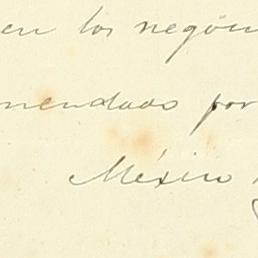 en los negoci
mendado por
México